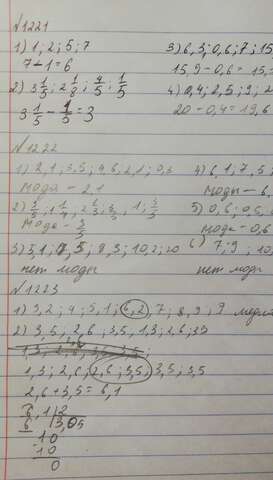 N1221
1) 1; 2; 5; 7
7 - 1 = 6
2) 3 1/5; 2 1/8; 4/5; 1/5
3 1/5 - 1/5 = 3
3) 6,3; 0,6; 7; 15
15,9 - 0,6 = 15,
4) 0,4; 2,5; 9; 2
20 - 0,4 = 19,6
N1222
1) 2,1; 3,5; 4,6; 2,1; 0,3
мода - 2,1
мода - 3/5
3) 3,1; 7,5; 8,3; 10,2; 20
нет моды
4) 6,1; 7,5;
моды - 6,
5) 0,6; 0,5;
мода = 0,6
6) 7; 9; 10,
нет моды
N1223
1) 3,2; 4; 5,1; 6,2; 7; 8,9; 9
2) 3,5; 2,6; 3,5; 1,3; 2,6; 3,5
1,3; 2,6; 2,6; 3,5; 3,5; 3,5
2,6 + 3,5 = 6,1
6,1 2
6 3,05
10
10
0